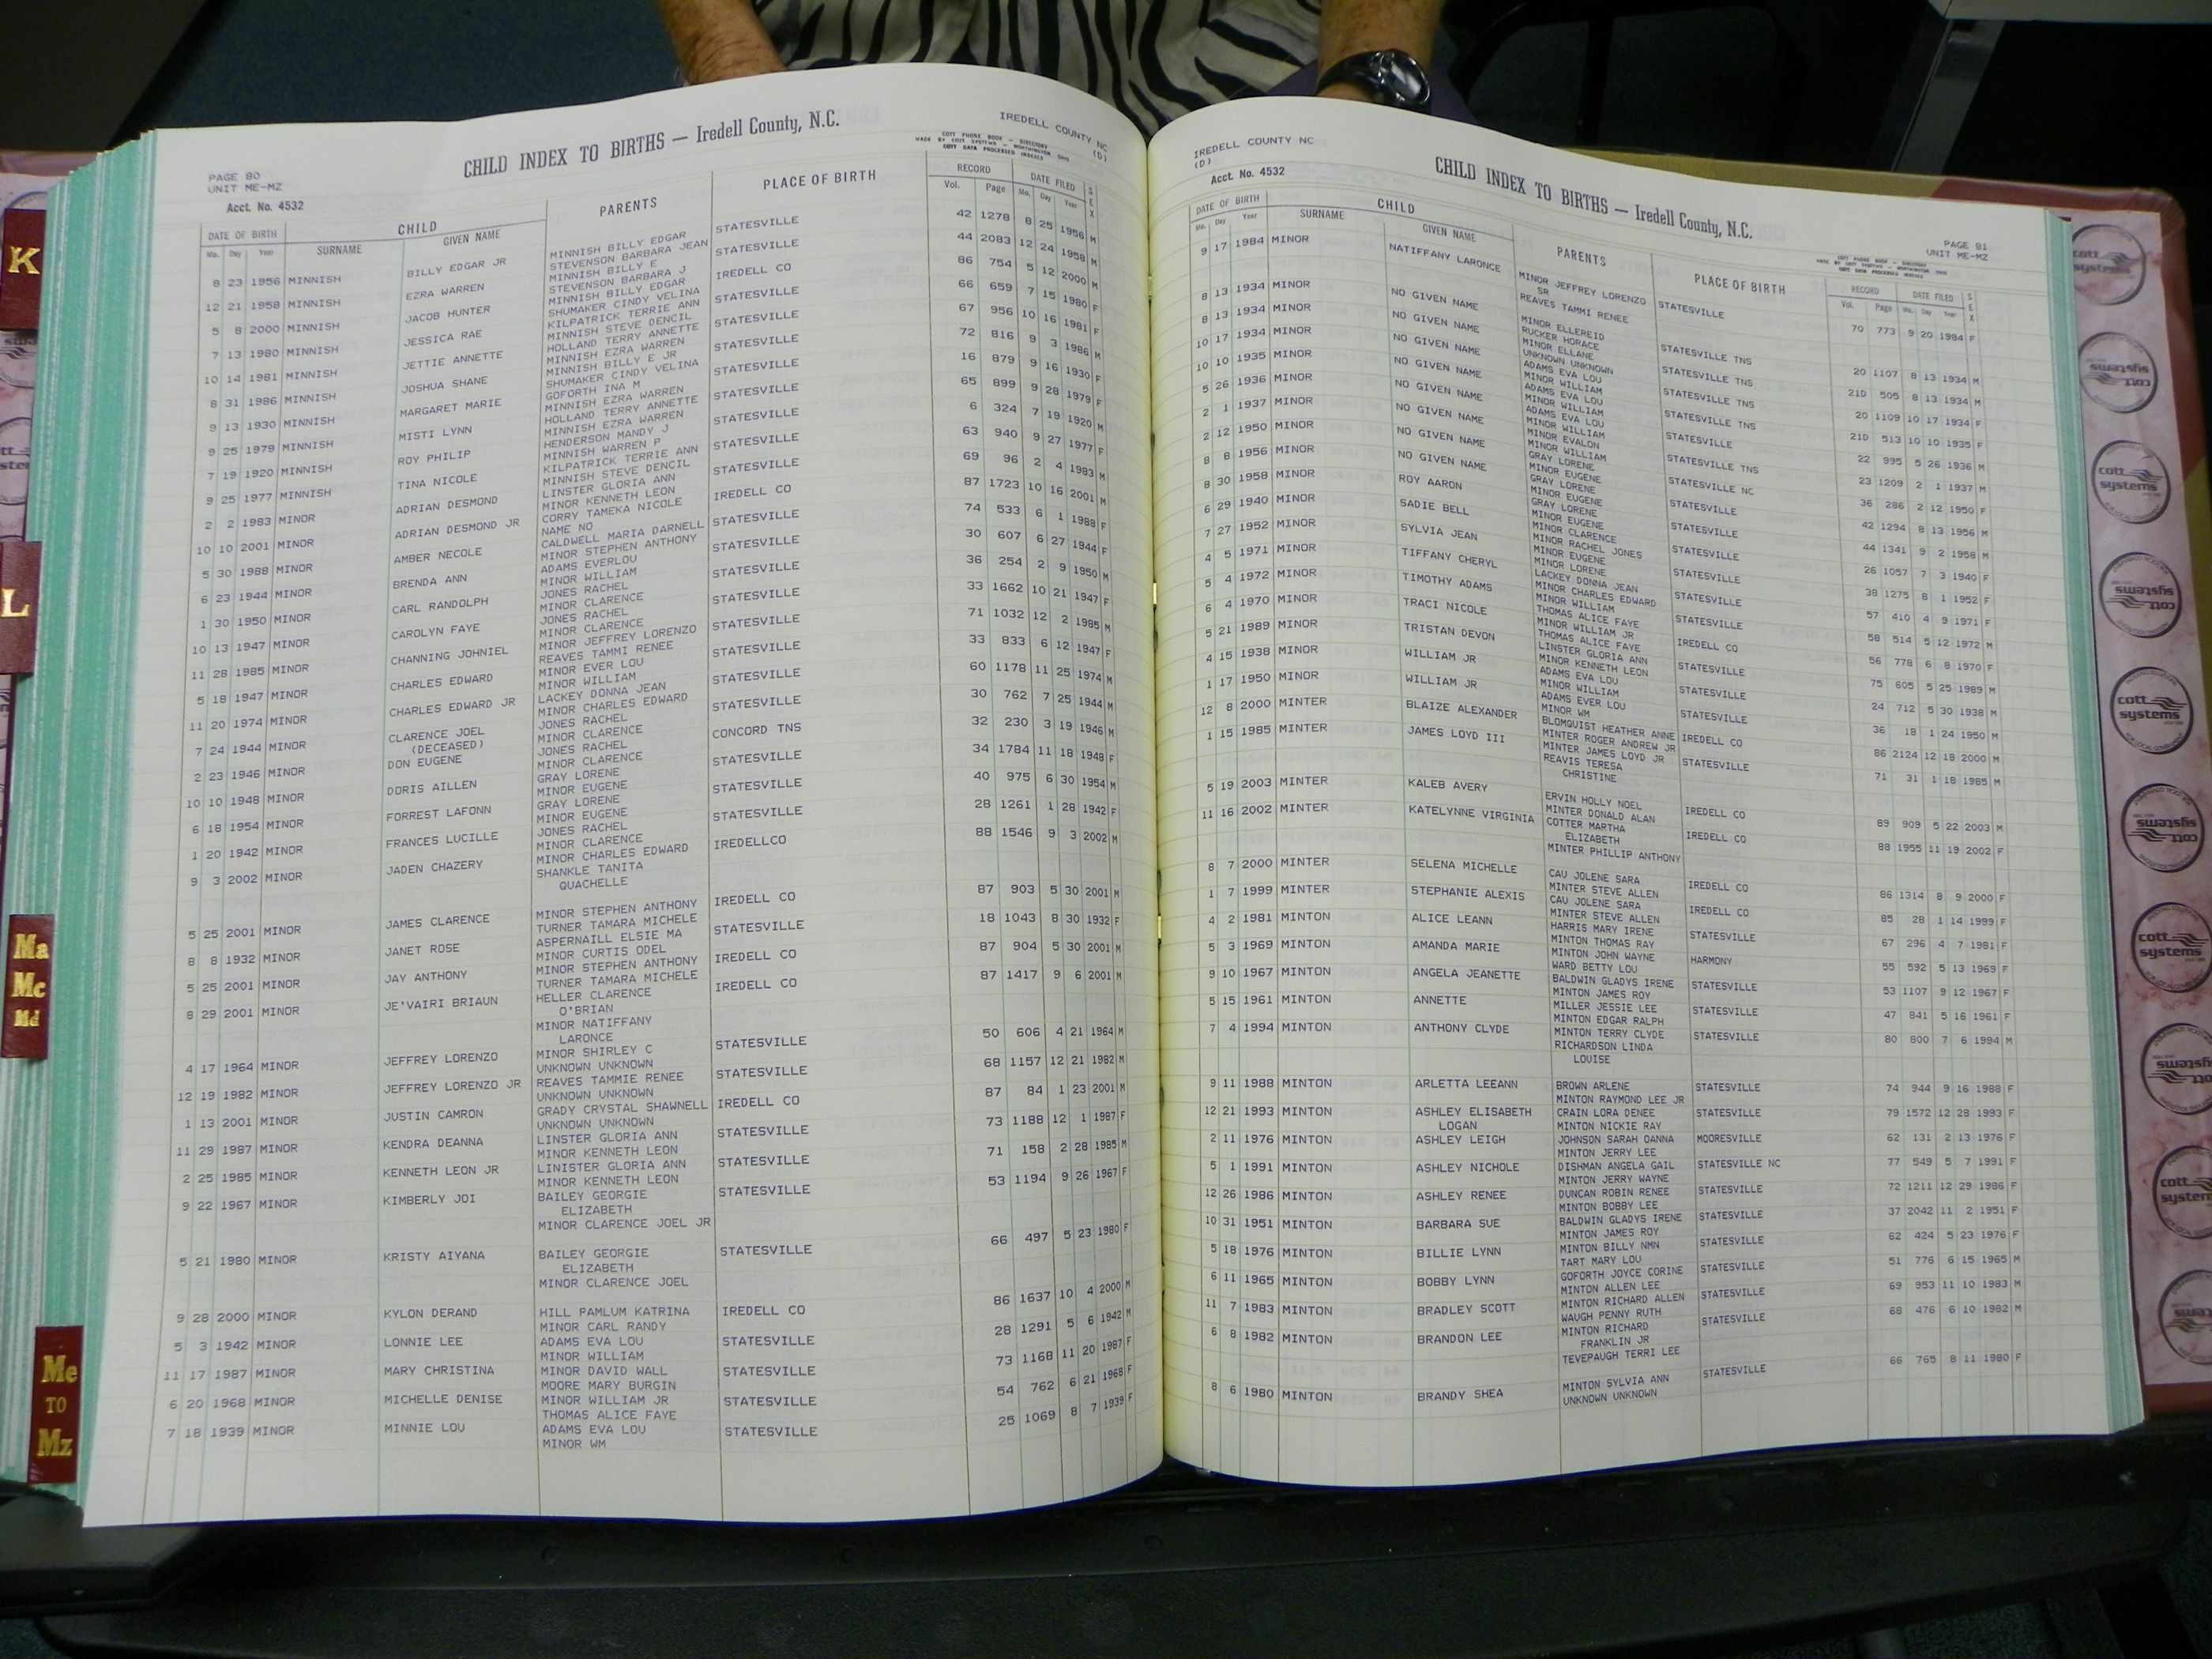 IREDELL COUNTY NC
(D)
CHILD INDEX TO BIRTHS — Iredell County, N.C.
COTT PHONE BOOK - DIRECTORY
MADE BY COTT SYSTEMS - WORTHINGTON OHIO
COTT DATA PROCESSED INDEXES
PAGE 80
UNIT ME-MZ
Acct. No. 4532
DATE OF BIRTH CHILD PARENTS PLACE OF BIRTH RECORD DATE FILED SEX
Mo. Day Year SURNAME GIVEN NAME Vol. Page Mo. Day Year
8 23 1956 MINNISH BILLY EDGAR JR MINNISH BILLY EDGAR STATESVILLE 42 1278 8 25 1956 M
STEVENSON BARBARA JEAN
12 21 1958 MINNISH EZRA WARREN MINNISH BILLY E STATESVILLE 44 2083 12 24 1958 M
STEVENSON BARBARA J
5 8 2000 MINNISH JACOB HUNTER MINNISH BILLY EDGAR IREDELL CO 86 754 5 12 2000 M
SHUMAKER CINDY VELINA
7 13 1980 MINNISH JESSICA RAE KILPATRICK TERRIE ANN STATESVILLE 66 659 7 15 1980 F
MINNISH STEVE DENCIL
10 14 1981 MINNISH JETTIE ANNETTE HOLLAND TERRY ANNETTE STATESVILLE 67 956 10 16 1981 F
MINNISH EZRA WARREN
8 31 1986 MINNISH JOSHUA SHANE MINNISH BILLY E JR STATESVILLE 72 816 9 3 1986 M
SHUMAKER CINDY VELINA
9 13 1930 MINNISH MARGARET MARIE GOFORTH INA M STATESVILLE 16 879 9 16 1930 F
MINNISH EZRA WARREN
9 25 1979 MINNISH MISTI LYNN HOLLAND TERRY ANNETTE STATESVILLE 65 899 9 28 1979 F
MINNISH EZRA WARREN
7 19 1920 MINNISH ROY PHILIP HENDERSON MANDY J STATESVILLE 6 324 7 19 1920 M
MINNISH WARREN P
9 25 1977 MINNISH TINA NICOLE KILPATRICK TERRIE ANN STATESVILLE 63 940 9 27 1977 F
MINNISH STEVE DENCIL
2 2 1983 MINOR ADRIAN DESMOND LINSTER GLORIA ANN STATESVILLE 69 96 2 4 1983 M
MINOR KENNETH LEON
10 10 2001 MINOR ADRIAN DESMOND JR CORRY TAMEKA NICOLE IREDELL CO 87 1723 10 16 2001 M
NAME NO
5 30 1988 MINOR AMBER NECOLE CALDWELL MARIA DARNELL STATESVILLE 74 533 6 1 1988 F
MINOR STEPHEN ANTHONY
6 23 1944 MINOR BRENDA ANN ADAMS EVERLOU STATESVILLE 30 607 6 27 1944 F
MINOR WILLIAM
1 30 1950 MINOR CARL RANDOLPH JONES RACHEL STATESVILLE 36 254 2 9 1950 M
MINOR CLARENCE
10 13 1947 MINOR CAROLYN FAYE JONES RACHEL STATESVILLE 33 1662 10 21 1947 F
MINOR CLARENCE
11 28 1985 MINOR CHANNING JOHNIEL MINOR JEFFREY LORENZO STATESVILLE 71 1032 12 2 1985 M
REAVES TAMMI RENEE
5 18 1947 MINOR CHARLES EDWARD MINOR EVER LOU STATESVILLE 33 833 6 12 1947 F
MINOR WILLIAM
11 20 1974 MINOR CHARLES EDWARD JR LACKEY DONNA JEAN STATESVILLE 60 1178 11 25 1974 M
MINOR CHARLES EDWARD
7 24 1944 MINOR CLARENCE JOEL JONES RACHEL STATESVILLE 30 762 7 25 1944 M
(DECEASED) MINOR CLARENCE
2 23 1946 MINOR DON EUGENE JONES RACHEL CONCORD TNS 32 230 3 19 1946 M
MINOR CLARENCE
10 10 1948 MINOR DORIS AILLEN GRAY LORENE STATESVILLE 34 1784 11 18 1948 F
MINOR EUGENE
6 18 1954 MINOR FORREST LAFONN GRAY LORENE STATESVILLE 40 975 6 30 1954 M
MINOR EUGENE
1 20 1942 MINOR FRANCES LUCILLE JONES RACHEL STATESVILLE 28 1261 1 28 1942 F
MINOR CLARENCE
9 3 2002 MINOR JADEN CHAZERY MINOR CHARLES EDWARD IREDELLCO 88 1546 9 3 2002 M
SHANKLE TANITA
QUACHELLE
5 25 2001 MINOR JAMES CLARENCE MINOR STEPHEN ANTHONY IREDELL CO 87 903 5 30 2001 M
TURNER TAMARA MICHELE
8 8 1932 MINOR JANET ROSE ASPERNAILL ELSIE MA STATESVILLE 18 1043 8 30 1932 F
MINOR CURTIS ODEL
5 25 2001 MINOR JAY ANTHONY MINOR STEPHEN ANTHONY IREDELL CO 87 904 5 30 2001 M
TURNER TAMARA MICHELE
8 29 2001 MINOR JE'VAIRI BRIAUN HELLER CLARENCE IREDELL CO 87 1417 9 6 2001 M
O'BRIAN
MINOR NATIFFANY
LARONCE
4 17 1964 MINOR JEFFREY LORENZO MINOR SHIRLEY C STATESVILLE 50 606 4 21 1964 M
UNKNOWN UNKNOWN
12 19 1982 MINOR JEFFREY LORENZO JR REAVES TAMMIE RENEE STATESVILLE 68 1157 12 21 1982 M
UNKNOWN UNKNOWN
1 13 2001 MINOR JUSTIN CAMRON GRADY CRYSTAL SHAWNELL IREDELL CO 87 84 1 23 2001 M
UNKNOWN UNKNOWN
11 29 1987 MINOR KENDRA DEANNA LINSTER GLORIA ANN STATESVILLE 73 1188 12 1 1987 F
MINOR KENNETH LEON
2 25 1985 MINOR KENNETH LEON JR LINISTER GLORIA ANN STATESVILLE 71 158 2 28 1985 M
MINOR KENNETH LEON
9 22 1967 MINOR KIMBERLY JOI BAILEY GEORGIE STATESVILLE 53 1194 9 26 1967 F
ELIZABETH
MINOR CLARENCE JOEL JR
5 21 1980 MINOR KRISTY AIYANA BAILEY GEORGIE STATESVILLE 66 497 5 23 1980 F
ELIZABETH
MINOR CLARENCE JOEL
9 28 2000 MINOR KYLON DERAND HILL PAMLUM KATRINA IREDELL CO 86 1637 10 4 2000 M
MINOR CARL RANDY
5 3 1942 MINOR LONNIE LEE ADAMS EVA LOU STATESVILLE 28 1291 5 6 1942 M
MINOR WILLIAM
11 17 1987 MINOR MARY CHRISTINA MINOR DAVID WALL STATESVILLE 73 1168 11 20 1987 F
MOORE MARY BURGIN
6 20 1968 MINOR MICHELLE DENISE MINOR WILLIAM JR STATESVILLE 54 762 6 21 1968 F
THOMAS ALICE FAYE
7 18 1939 MINOR MINNIE LOU ADAMS EVA LOU STATESVILLE 25 1069 8 7 1939 F
MINOR WM
IREDELL COUNTY NC
(D)
Acct. No. 4532
CHILD INDEX TO BIRTHS — Iredell County, N.C.
PAGE 81
UNIT ME-MZ
COTT PHONE BOOK - DIRECTORY
MADE BY COTT SYSTEMS - WORTHINGTON OHIO
COTT DATA PROCESSED INDEXES
DATE OF BIRTH CHILD PARENTS PLACE OF BIRTH RECORD DATE FILED SEX
Mo. Day Year SURNAME GIVEN NAME Vol. Page Mo. Day Year
9 17 1984 MINOR NATIFFANY LARONCE MINOR JEFFREY LORENZO STATESVILLE 70 773 9 20 1984 F
SR
REAVES TAMMI RENEE
8 13 1934 MINOR NO GIVEN NAME MINOR ELLEREID STATESVILLE TNS 20 1107 8 13 1934 M
RUCKER HORACE
8 13 1934 MINOR NO GIVEN NAME MINOR ELLANE STATESVILLE TNS 21D 505 8 13 1934 M
UNKNOWN UNKNOWN
10 17 1934 MINOR NO GIVEN NAME ADAMS EVA LOU STATESVILLE TNS 20 1109 10 17 1934 F
MINOR WILLIAM
10 10 1935 MINOR NO GIVEN NAME ADAMS EVA LOU STATESVILLE TNS 21D 513 10 10 1935 F
MINOR WILLIAM
5 26 1936 MINOR NO GIVEN NAME ADAMS EVA LOU STATESVILLE 22 995 5 26 1936 M
MINOR WILLIAM
2 1 1937 MINOR NO GIVEN NAME MINOR EVALON STATESVILLE TNS 23 1209 2 1 1937 M
MINOR WILLIAM
2 12 1950 MINOR NO GIVEN NAME GRAY LORENE STATESVILLE NC 36 286 2 12 1950 F
MINOR EUGENE
8 8 1956 MINOR NO GIVEN NAME GRAY LORENE STATESVILLE 42 1294 8 13 1956 M
MINOR EUGENE
8 30 1958 MINOR NO GIVEN NAME GRAY LORENE STATESVILLE 44 1341 9 2 1958 M
MINOR EUGENE
6 29 1940 MINOR ROY AARON MINOR CLARENCE STATESVILLE 26 1057 7 3 1940 F
MINOR RACHEL JONES
7 27 1952 MINOR SADIE BELL MINOR EUGENE STATESVILLE 38 1275 8 1 1952 F
MINOR LORENE
4 5 1971 MINOR SYLVIA JEAN LACKEY DONNA JEAN STATESVILLE 57 410 4 9 1971 F
MINOR CHARLES EDWARD
5 4 1972 MINOR TIFFANY CHERYL MINOR WILLIAM IREDELL CO 58 514 5 12 1972 M
THOMAS ALICE FAYE
6 4 1970 MINOR TIMOTHY ADAMS MINOR WILLIAM JR STATESVILLE 56 778 6 8 1970 F
THOMAS ALICE FAYE
5 21 1989 MINOR TRACI NICOLE LINSTER GLORIA ANN STATESVILLE 75 605 5 25 1989 M
MINOR KENNETH LEON
4 15 1938 MINOR TRISTAN DEVON ADAMS EVA LOU STATESVILLE 24 712 5 30 1938 M
MINOR WILLIAM
1 17 1950 MINOR WILLIAM JR ADAMS EVER LOU IREDELL CO 36 18 1 24 1950 M
WILLIAM JR MINOR WM
12 8 2000 MINTER BLAIZE ALEXANDER BLOMQUIST HEATHER ANNE STATESVILLE 86 2124 12 18 2000 M
MINTER ROGER ANDREW JR
1 15 1985 MINTER JAMES LOYD III MINTER JAMES LOYD JR 71 31 1 18 1985 M
REAVIS TERESA
CHRISTINE
5 19 2003 MINTER KALEB AVERY ERVIN HOLLY NOEL IREDELL CO 89 909 5 22 2003 M
MINTER DONALD ALAN
11 16 2002 MINTER KATELYNNE VIRGINIA COTTER MARTHA IREDELL CO 88 1955 11 19 2002 F
ELIZABETH
MINTER PHILLIP ANTHONY
8 7 2000 MINTER SELENA MICHELLE CAU JOLENE SARA IREDELL CO 86 1314 8 9 2000 F
MINTER STEVE ALLEN
1 7 1999 MINTER STEPHANIE ALEXIS CAU JOLENE SARA IREDELL CO 85 28 1 14 1999 F
MINTER STEVE ALLEN
4 2 1981 MINTON ALICE LEANN HARRIS MARY IRENE STATESVILLE 67 296 4 7 1981 F
MINTON THOMAS RAY
5 3 1969 MINTON AMANDA MARIE MINTON JOHN WAYNE HARMONY 55 592 5 13 1969 F
WARD BETTY LOU
9 10 1967 MINTON ANGELA JEANETTE BALDWIN GLADYS IRENE STATESVILLE 53 1107 9 12 1967 F
MINTON JAMES ROY
5 15 1961 MINTON ANNETTE MILLER JESSIE LEE STATESVILLE 47 841 5 16 1961 F
MINTON EDGAR RALPH
7 4 1994 MINTON ANTHONY CLYDE MINTON TERRY CLYDE STATESVILLE 80 800 7 6 1994 M
RICHARDSON LINDA
LOUISE
9 11 1988 MINTON ARLETTA LEEANN BROWN ARLENE STATESVILLE 74 944 9 16 1988 F
MINTON RAYMOND LEE JR
12 21 1993 MINTON ASHLEY ELISABETH CRAIN LORA DENEE STATESVILLE 79 1572 12 28 1993 F
LOGAN MINTON NICKIE RAY
2 11 1976 MINTON ASHLEY LEIGH JOHNSON SARAH DANNA MOORESVILLE 62 131 2 13 1976 F
MINTON JERRY LEE
5 1 1991 MINTON ASHLEY NICHOLE DISHMAN ANGELA GAIL STATESVILLE NC 77 549 5 7 1991 F
MINTON JERRY WAYNE
12 26 1986 MINTON ASHLEY RENEE DUNCAN ROBIN RENEE STATESVILLE 72 1211 12 29 1986 F
MINTON BOBBY LEE
10 31 1951 MINTON BARBARA SUE BALDWIN GLADYS IRENE STATESVILLE 37 2042 11 2 1951 F
MINTON JAMES ROY
5 18 1976 MINTON BILLIE LYNN MINTON BILLY NMN STATESVILLE 62 424 5 23 1976 F
TART MARY LOU
6 11 1965 MINTON BOBBY LYNN GOFORTH JOYCE CORINE STATESVILLE 51 776 6 15 1965 M
MINTON ALLEN LEE
11 7 1983 MINTON BRADLEY SCOTT MINTON RICHARD ALLEN STATESVILLE 69 953 11 10 1983 M
WAUGH PENNY RUTH
6 8 1982 MINTON BRANDON LEE MINTON RICHARD STATESVILLE 68 476 6 10 1982 M
FRANKLIN JR
TEVEPAUGH TERRI LEE
8 6 1980 MINTON BRANDY SHEA MINTON SYLVIA ANN STATESVILLE 66 765 8 11 1980 F
UNKNOWN UNKNOWN
K
L
Ma
Mc
Md
Me
TO
Mz
cott
systems
cott
systems
cott
systems
cott
systems
cott
systems
cott
systems
cott
systems
cott
systems
cott
systems